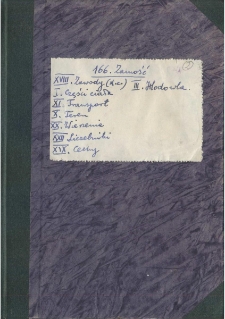 166. Zamość
XVIII. Zawody (Lu) IV. Hodowla
I. Części ciała
XI. Transport
X. Teren
XX. Wierzenia
XXII. Liczebniki
XIX. Cechy